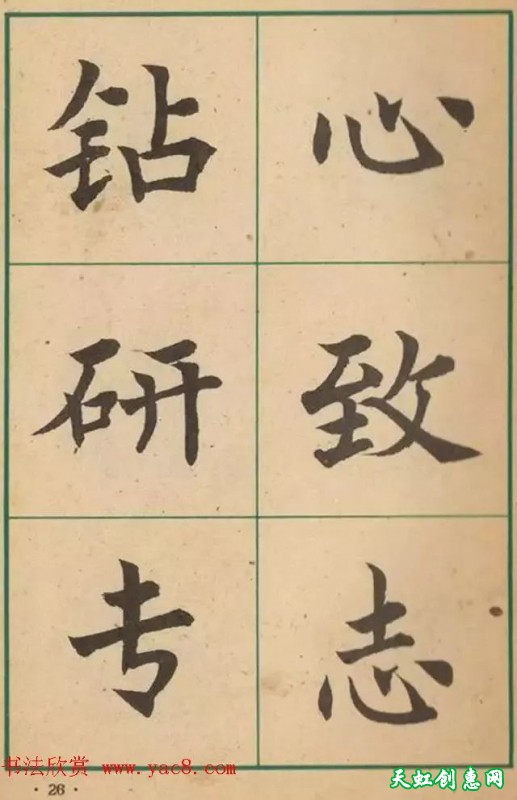 心致志
钻研专
书法欣赏 www.yac8.com
·26·
天虹创惠网